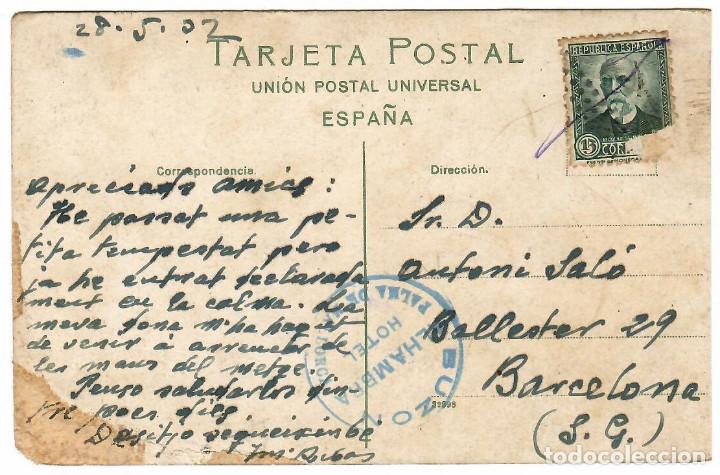 28-5-32
TARJETA POSTAL
UNIÓN POSTAL UNIVERSAL
ESPAÑA
REPUBLICA ESPAÑOLA
15
Correspondencia.
Dirección.
Apreciado amics:
He passat una pe-
tita tempestat pero
ja he entrat declarada
ment en la calma. La
meva dona m'ha hagut
de venir á arrencar de
les mans del metge.
Penso saludarlos din-
tre poc dies
Desitjo segueixin bé
Ribas
Sr. D.
Antoni Saló
Ballester 29
Barcelona
(S. G.)
BUZON
ALHAMBRA
HOTEL
PALMA DE
todocoleccion